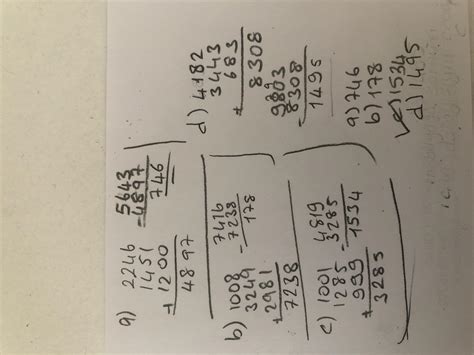 a) 2246
1451
+ 1200
4897
5643
- 4897
746
b) 1008
3249
+ 2981
7238
7416
- 7238
178
c) 1001
1285
+ 999
3285
4819
- 3285
1534
d) 4182
3443
+ 683
8308
9803
- 8308
1495
a) 746
b) 178
c) 1534
d) 1495